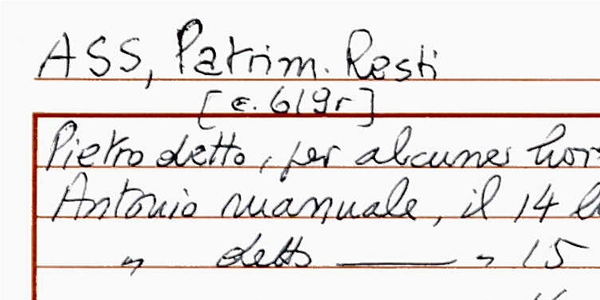 ASS, Patrim. Resti
[c. 619r]
Pietro detto, per alcune hor
Antonio manuale, il 14
" detto — " 15